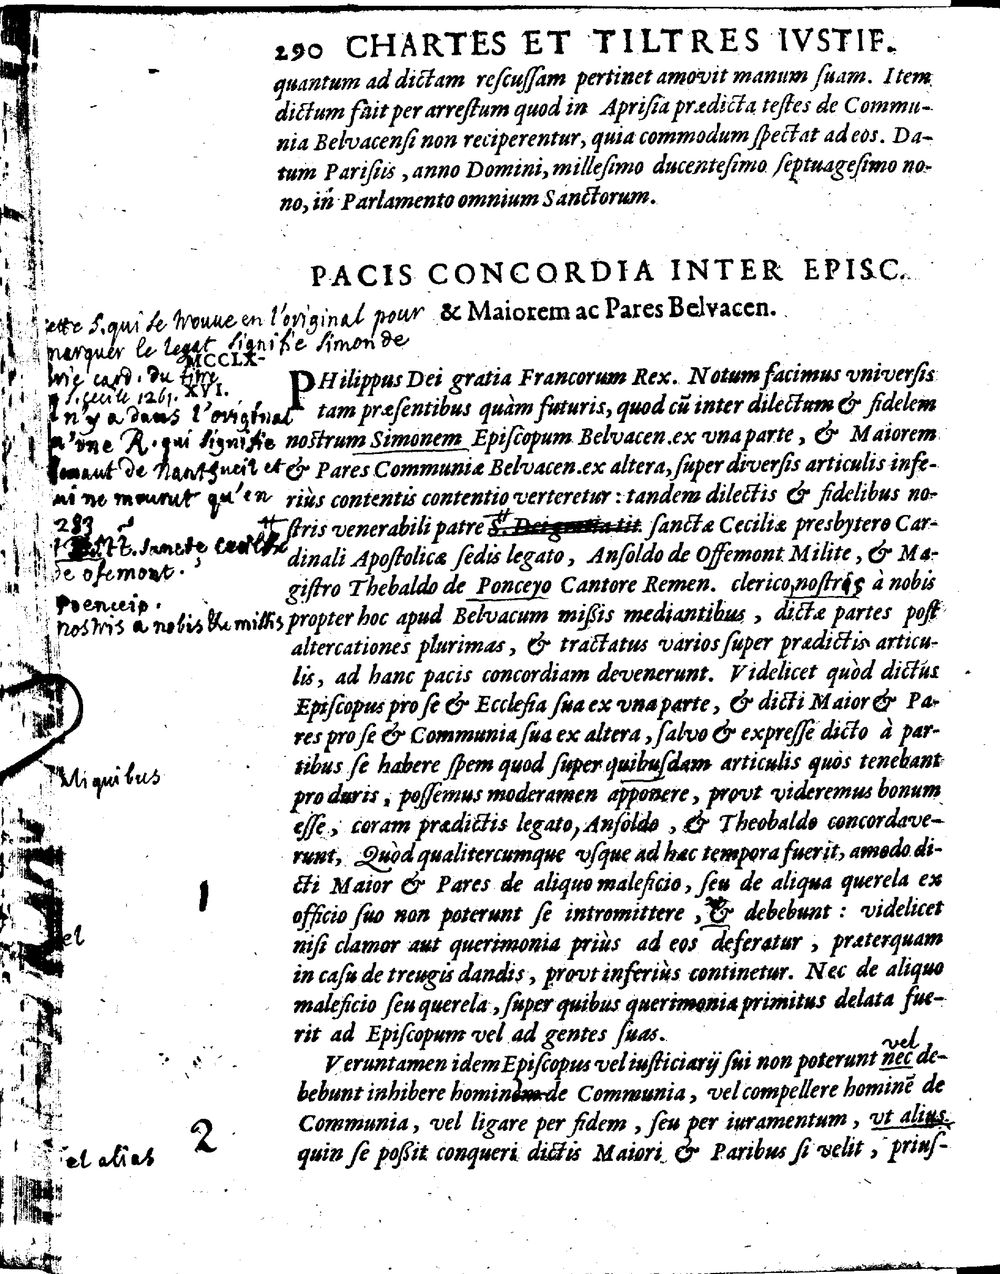 290 CHARTES ET TILTRES IVSTIF.
quantum ad dictam rescussam pertinet amovit manum suam. Item
dictum fuit per arrestum quod in Aprisia prædicta testes de Commu-
nia Belvacensi non reciperentur, quia commodum spectat ad eos. Da-
tum Parisiis, anno Domini, millesimo ducentesimo septuagesimo no-
no, in Parlamento omnium Sanctorum.
PACIS CONCORDIA INTER EPISC.
& Maiorem ac Pares Belvacen.
ette S. qui se trouue en l'original pour
marquer le legat signifie simon de
brie card. du titre
S. Cecile 1261.
il n'y a dans l'original
qu'une R. qui signifie
Renaut de Nanteueil et
qui ne mourut qu'en
283
tt. sancte cecilie
de ofemont.
Poenceio.
nostris a nobis &c missis
MCCLX-
XVI.
PHilippus Dei gratia Francorum Rex. Notum facimus vniversis
tam præsentibus quàm futuris, quod cũ inter dilectum & fidelem
nostrum Simonem Episcopum Belvacen. ex vna parte, & Maiorem
& Pares Communiæ Belvacen. ex altera, super diversis articulis infe-
riùs contentis contentio verteretur: tandem dilectis & fidelibus no-
stris venerabili patre S. Dei gratia tit. sanctæ Ceciliæ presbytero Car-
dinali Apostolicæ sedis legato, Ansoldo de Offemont Milite, & Ma-
gistro Thebaldo de Ponceyo Cantore Remen. clerico, nostris à nobis
propter hoc apud Belvacum missis mediantibus, dictæ partes post
altercationes plurimas, & tractatus varios super prædictis articu-
lis, ad hanc pacis concordiam devenerunt. Videlicet quòd dictus
Episcopus pro se & Ecclesia sua ex vna parte, & dicti Maior & Pa-
res pro se & Communia sua ex altera, salvo & expresse dicto à par-
tibus se habere spem quod super quibusdam articulis quos tenebant
pro duris, possemus moderamen apponere, provt videremus bonum
esse, coram prædictis legato, Ansoldo, & Theobaldo concordave-
runt, Quòd qualitercumque vsque ad hæc tempora fuerit, amodo di-
cti Maior & Pares de aliquo maleficio, seu de aliqua querela ex
officio suo non poterunt se intromittere, & debebunt: videlicet
nisi clamor aut querimonia priùs ad eos deferatur, præterquam
in casu de treugis dandis, provt inferiùs continetur. Nec de aliquo
maleficio seu querela, super quibus querimonia primitus delata fue-
rit ad Episcopum vel ad gentes suas.
quibus
1
el
vel
Veruntamen idem Episcopus vel iusticiarij sui non poterunt nec de-
bebunt inhibere hominem de Communia, vel compellere hominẽ de
Communia, vel ligare per fidem, seu per iuramentum, vt alius
quin se possit conqueri dictis Maiori & Paribus si velit, prius-
2
el alias